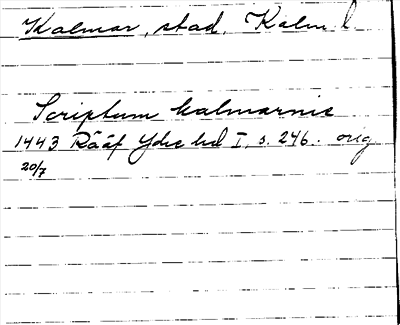 Kalmar, stad, Kalm l
Scriptum kalmarnie
1443 Rääf Ydre hd I, s. 246. orig
20/7